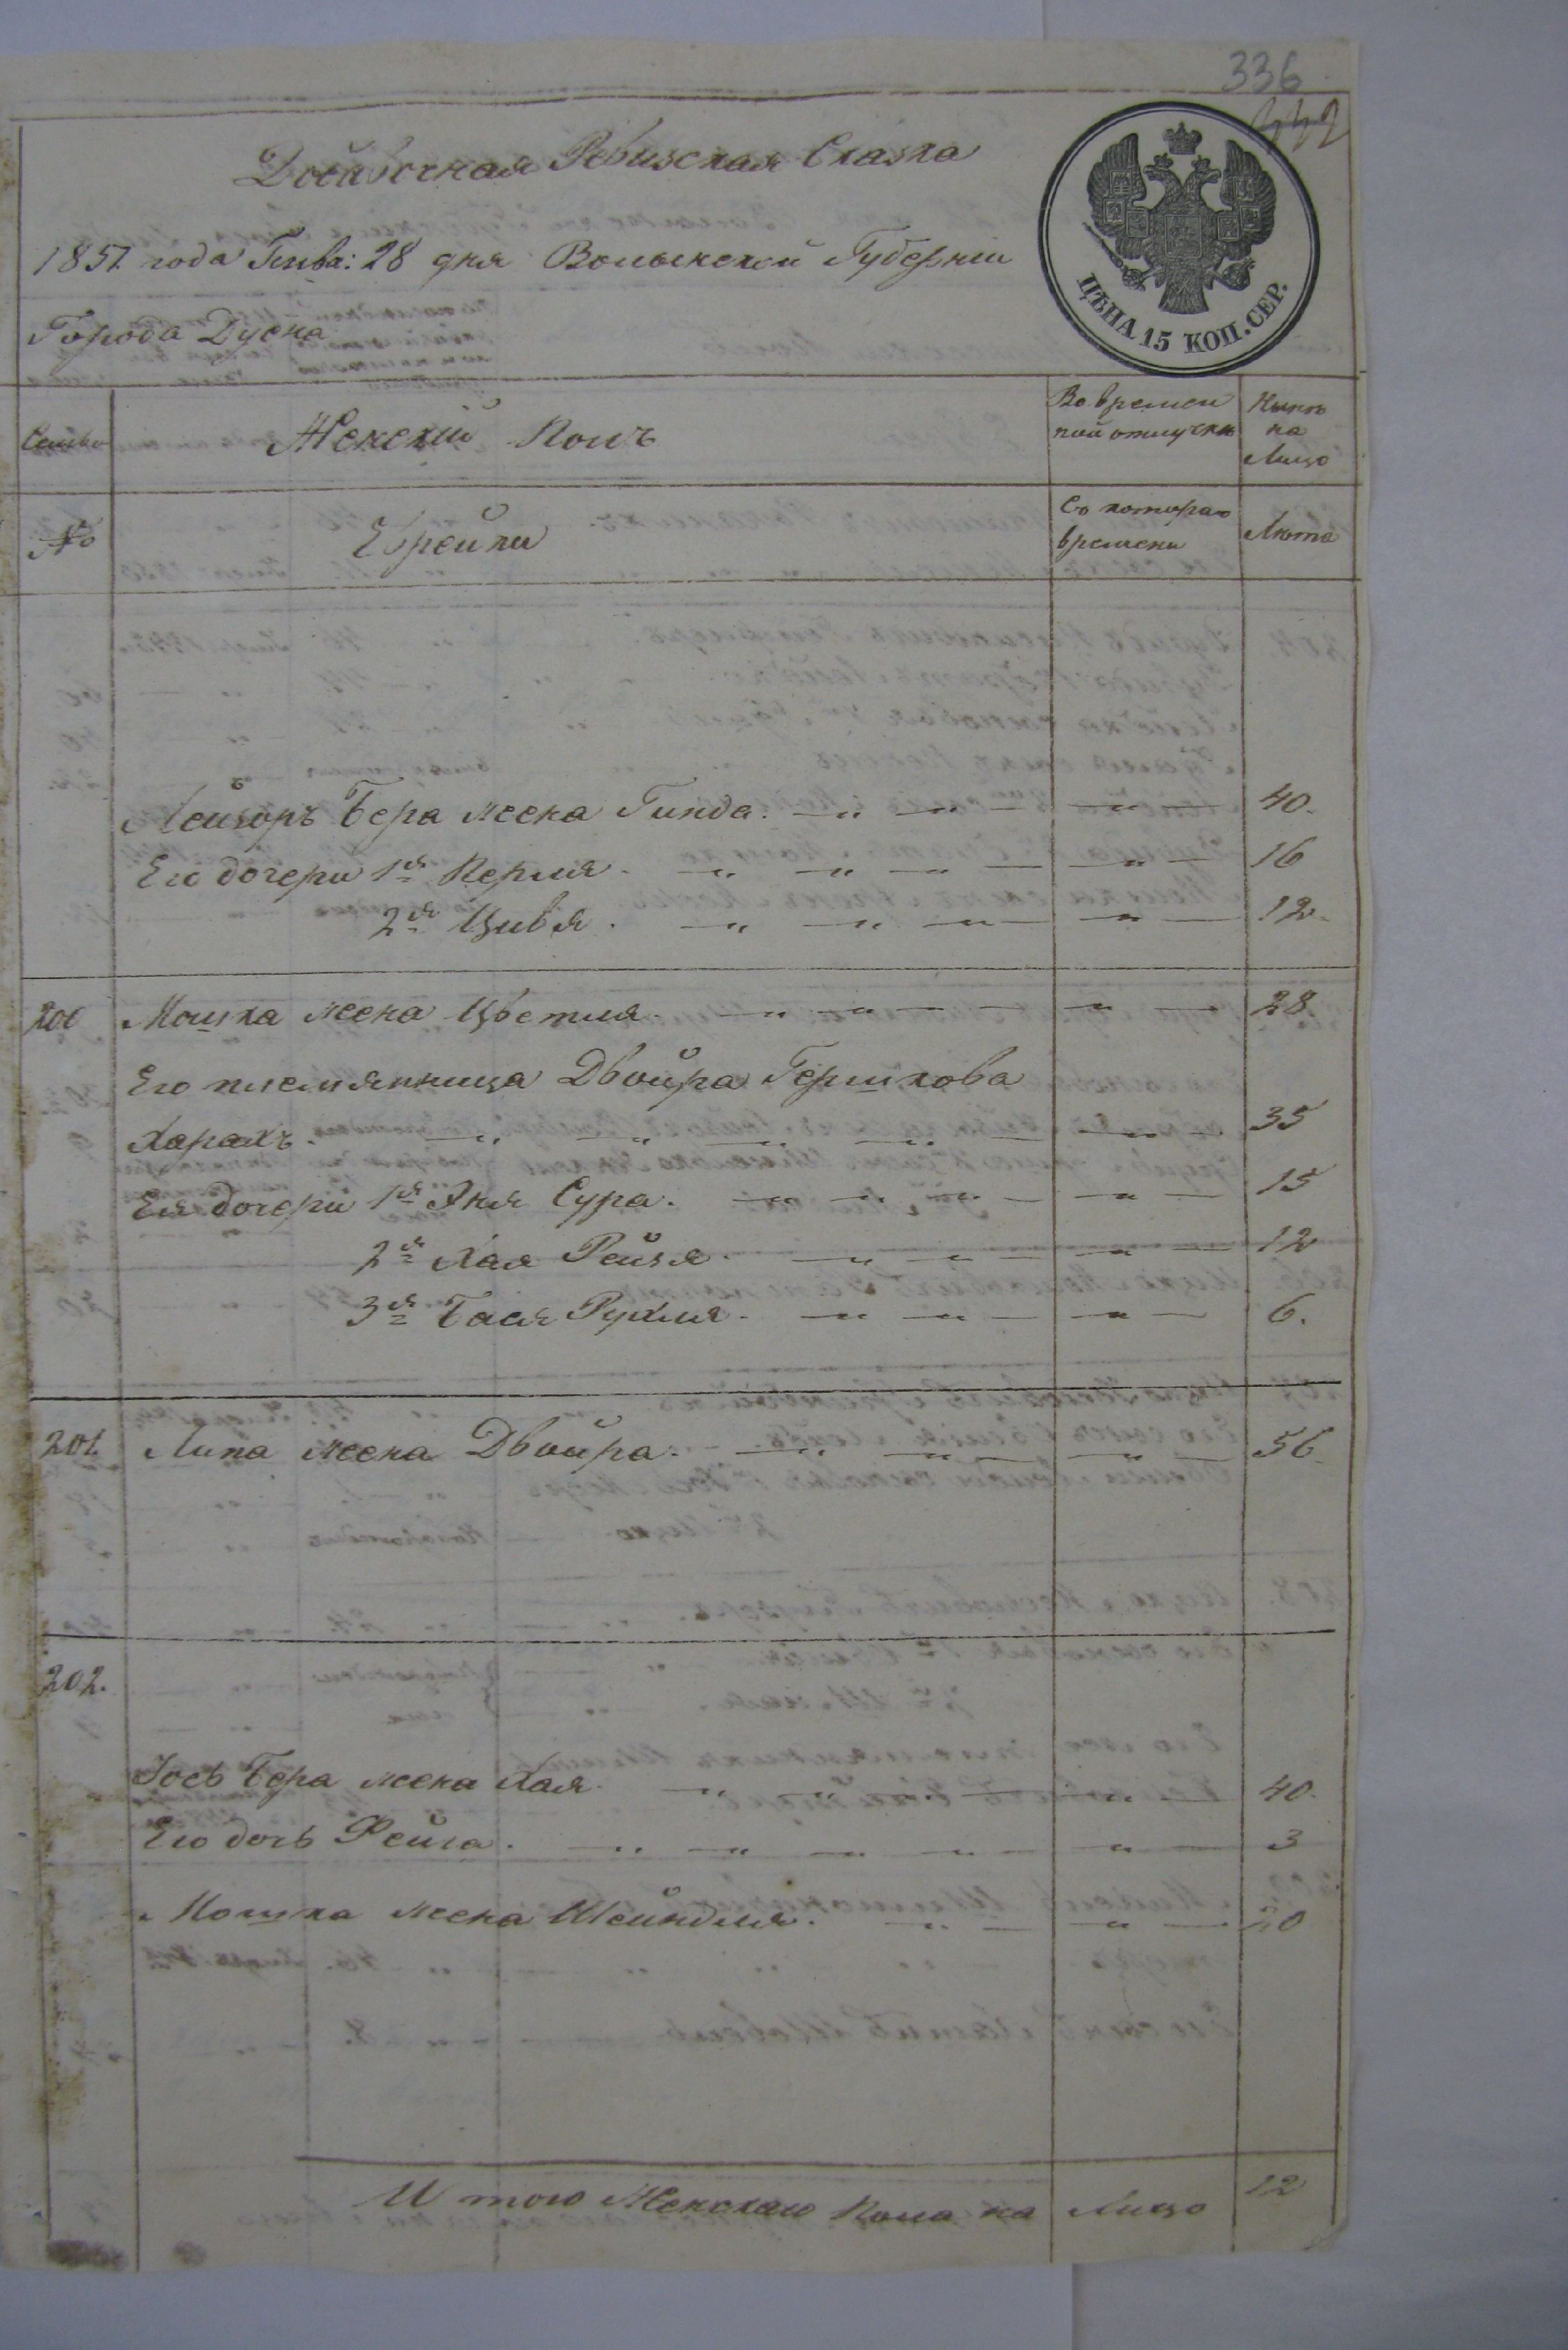 336
Добавочная Ревизская Сказка
1857 года Генва: 28 дня Волынской Губернии
Города Дубна
ЦѢНА 15 КОП. СЕР.
Семьи
Женскій Полъ
Во времен
ной отлучкѣ
Нынѣ
на
Лицо
№
Еврейки
Съ котораго
времени
Лѣта
Лейзоръ Бера жена Гинда. 40.
Его дочери 1я Перля. 16
2я Цивя. 12.
200 Мошка жена Цветля. 28
Его племянница Двойра Гершкова
35
Ея дочери 1я Хня Сура. 15
2я Хая Рейзя. 12
3я Бася Рухля. 6.
201. Липа жена Двойра. 56.
202.
Іось Бера жена Хая. 40.
Его дочь Фейга. 3
Мошка жена Шейндля. 20
И того Женскаго Пола на Лицо 12